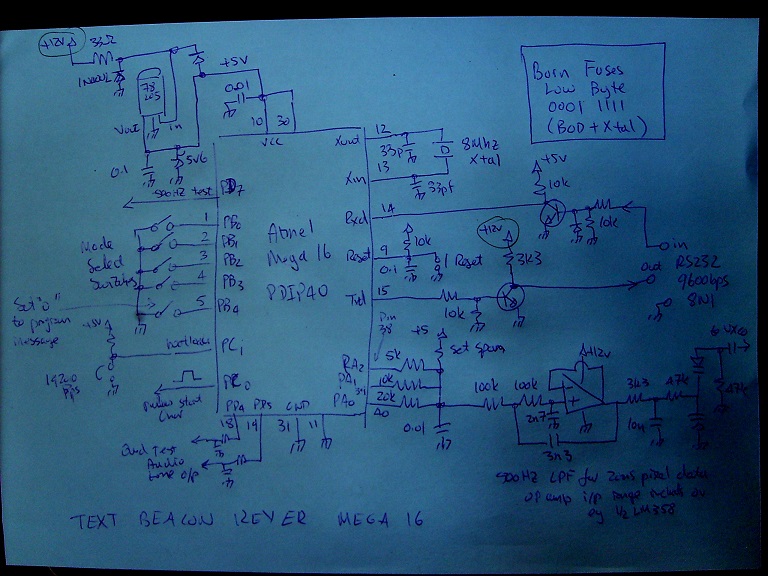 +12V
33Ω
+5V
0.01
78
L05
Vout
in
5V6
0.1
10
30
VCC
Burn Fuses
Low Byte
0001 1111
(BOD + Xtal)
Xout
12
33p
13
8MHz
Xtal
Xin
33pf
+5V
10k
Rxd
14
10k
500Hz test
PD7
Mode
Select
Switches
1
PB0
2
PB1
3
PB2
4
PB3
5
PB4
Atmel
Mega 16
PDIP40
Reset
9
10k
0.1
Reset
+12V
3k3
in
out
RS232
9600bps
8N1
Txd
15
10k
Set "0"
to program
message
+5V
bootload
PC1
19200
bps
PC0
Pin
38
PA2
PA1
PA0
5k
10k
20k
40
+5
set
0.01
100k
100k
2n7
+12V
3n3
3k3
47k
10n
47k
to VCXO
PD4
PD5
GND
18
19
31
11
Audio
tone o/p
500Hz LPF for 20ms pixel data
op amp i/p range include 0v
eg 1/2 LM358
TEXT BEACON KEYER MEGA 16